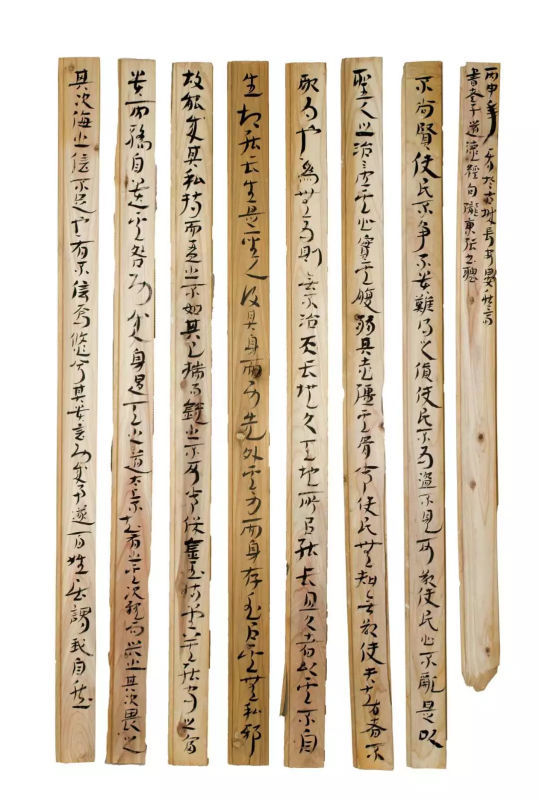 丙申年
書老子道德經句隴東張
不尚賢使民不争不貴難得之貨使民不為盗不見可欲使民心不亂是以
聖人之治虚其心實其腹弱其志彊其骨常使民無知無欲使夫知者不
敢為也為無為則無不治天長地久天地所以能長且久者以其不自
生故能長生是以聖人後其身而身先外其身而身存非以其無私邪
故能成其私持而盈之不如其已揣而銳之不可常保金玉滿堂莫能守之富
貴而驕自遺其咎功成身退天之道太上下知有之其次親而譽之其次畏之
其次侮之信不足焉有不信焉悠兮其貴言功成事遂百姓皆謂我自然